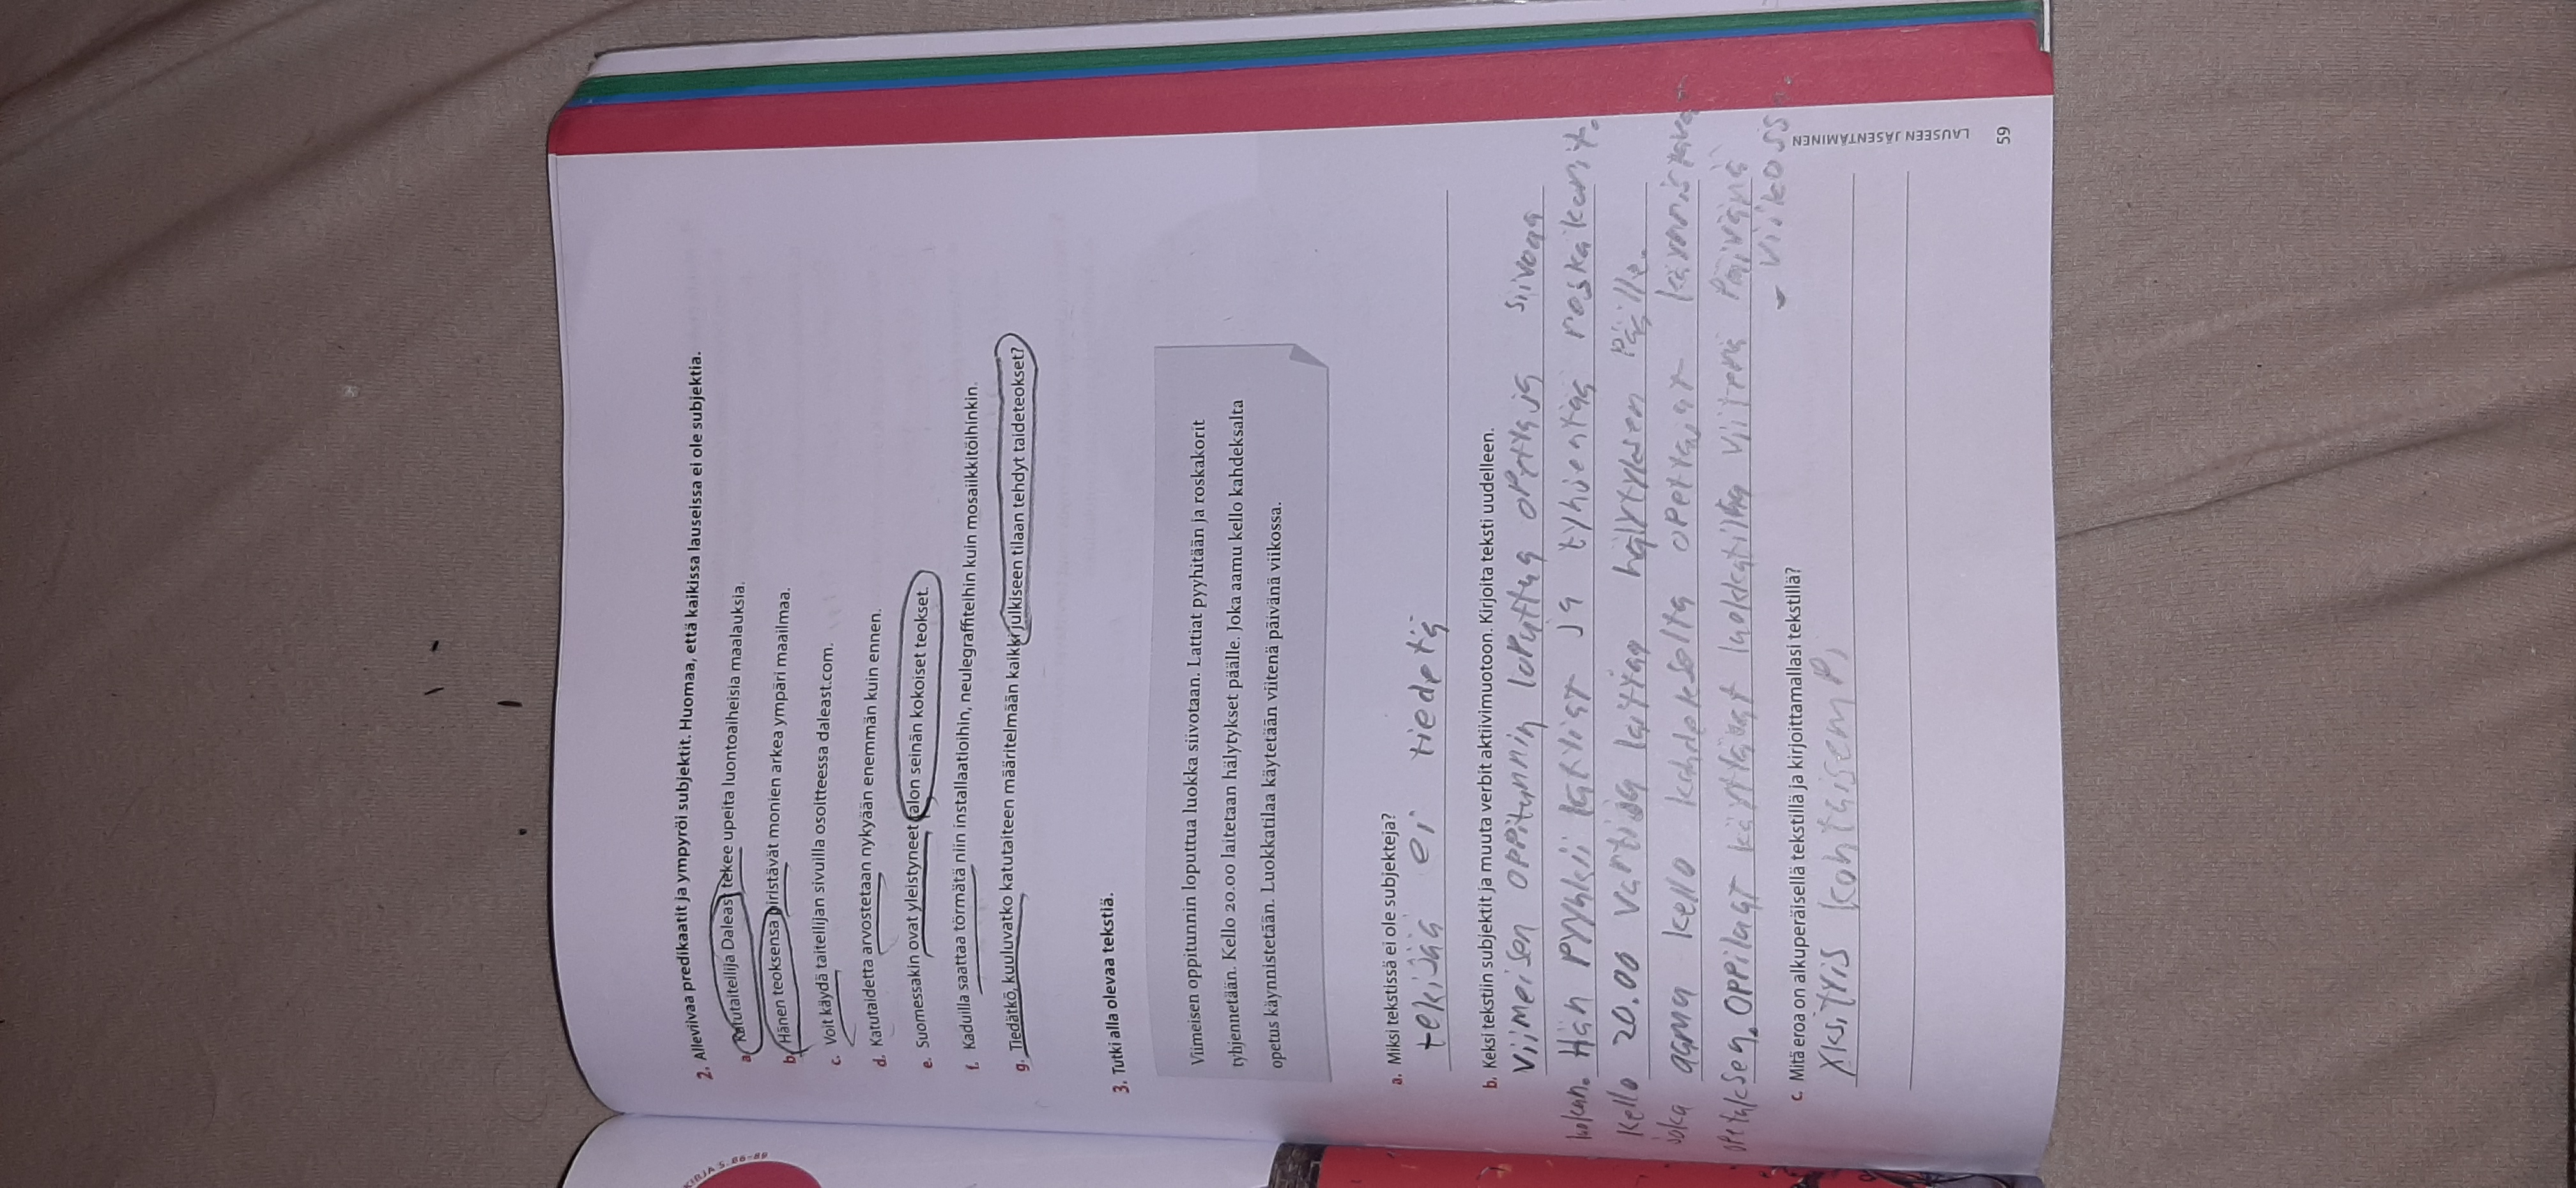 KIRJA S. 86–89
2. Alleviivaa predikaatit ja ympyröi subjektit. Huomaa, että kaikissa lauseissa ei ole subjektia.
a. Katutaiteilija Daleast tekee upeita luontoaiheisia maalauksia.
b. Hänen teoksensa piristävät monien arkea ympäri maailmaa.
c. Voit käydä taiteilijan sivuilla osoitteessa daleast.com.
d. Katutaidetta arvostetaan nykyään enemmän kuin ennen.
e. Suomessakin ovat yleistyneet talon seinän kokoiset teokset.
f. Kaduilla saattaa törmätä niin installaatioihin, neulegraffiteihin kuin mosaiikkitöihinkin.
g. Tiedätkö, kuuluvatko katutaiteen määritelmään kaikki julkiseen tilaan tehdyt taideteokset?
3. Tutki alla olevaa tekstiä.
Viimeisen oppitunnin loputtua luokka siivotaan. Lattiat pyyhitään ja roskakorit
tyhjennetään. Kello 20.00 laitetaan hälytykset päälle. Joka aamu kello kahdeksalta
opetus käynnistetään. Luokkatilaa käytetään viitenä päivänä viikossa.
a. Miksi tekstissä ei ole subjekteja?
tekijää ei tiedetä
b. Keksi tekstiin subjektit ja muuta verbit aktiivimuotoon. Kirjoita teksti uudelleen.
Viimeisen oppitunnin loputtua opettaja siivoaa
Hän pyyhkii lattiat ja tyhjentää roskakorit.
Kello 20.00 vartija laittaa hälytyksen päälle.
joka aamu kello kahdeksalta opettajat
opetuksen. Oppilaat käyttävät luokkatilaa viitenä päivänä
viikossa.
c. Mitä eroa on alkuperäisellä tekstillä ja kirjoittamallasi tekstillä?
LAUSEEN JÄSENTÄMINEN
59